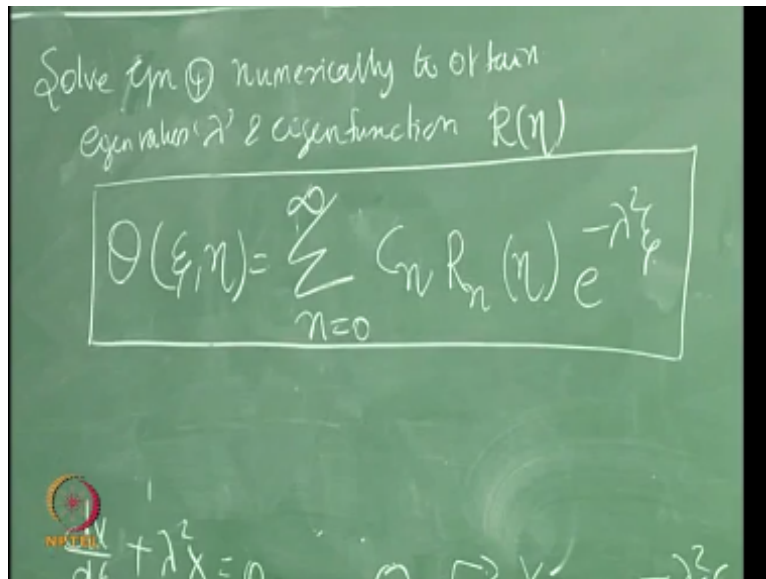 Solve eqn ④ numerically to obtain
eigenvalues 'λ' & eigenfunction R(η)
θ(ξ,η) = ∑_{n=0}^{∞} C_n R_n (η) e^{-λ²ξ}
NPTEL
dX/dξ + λ²X = 0